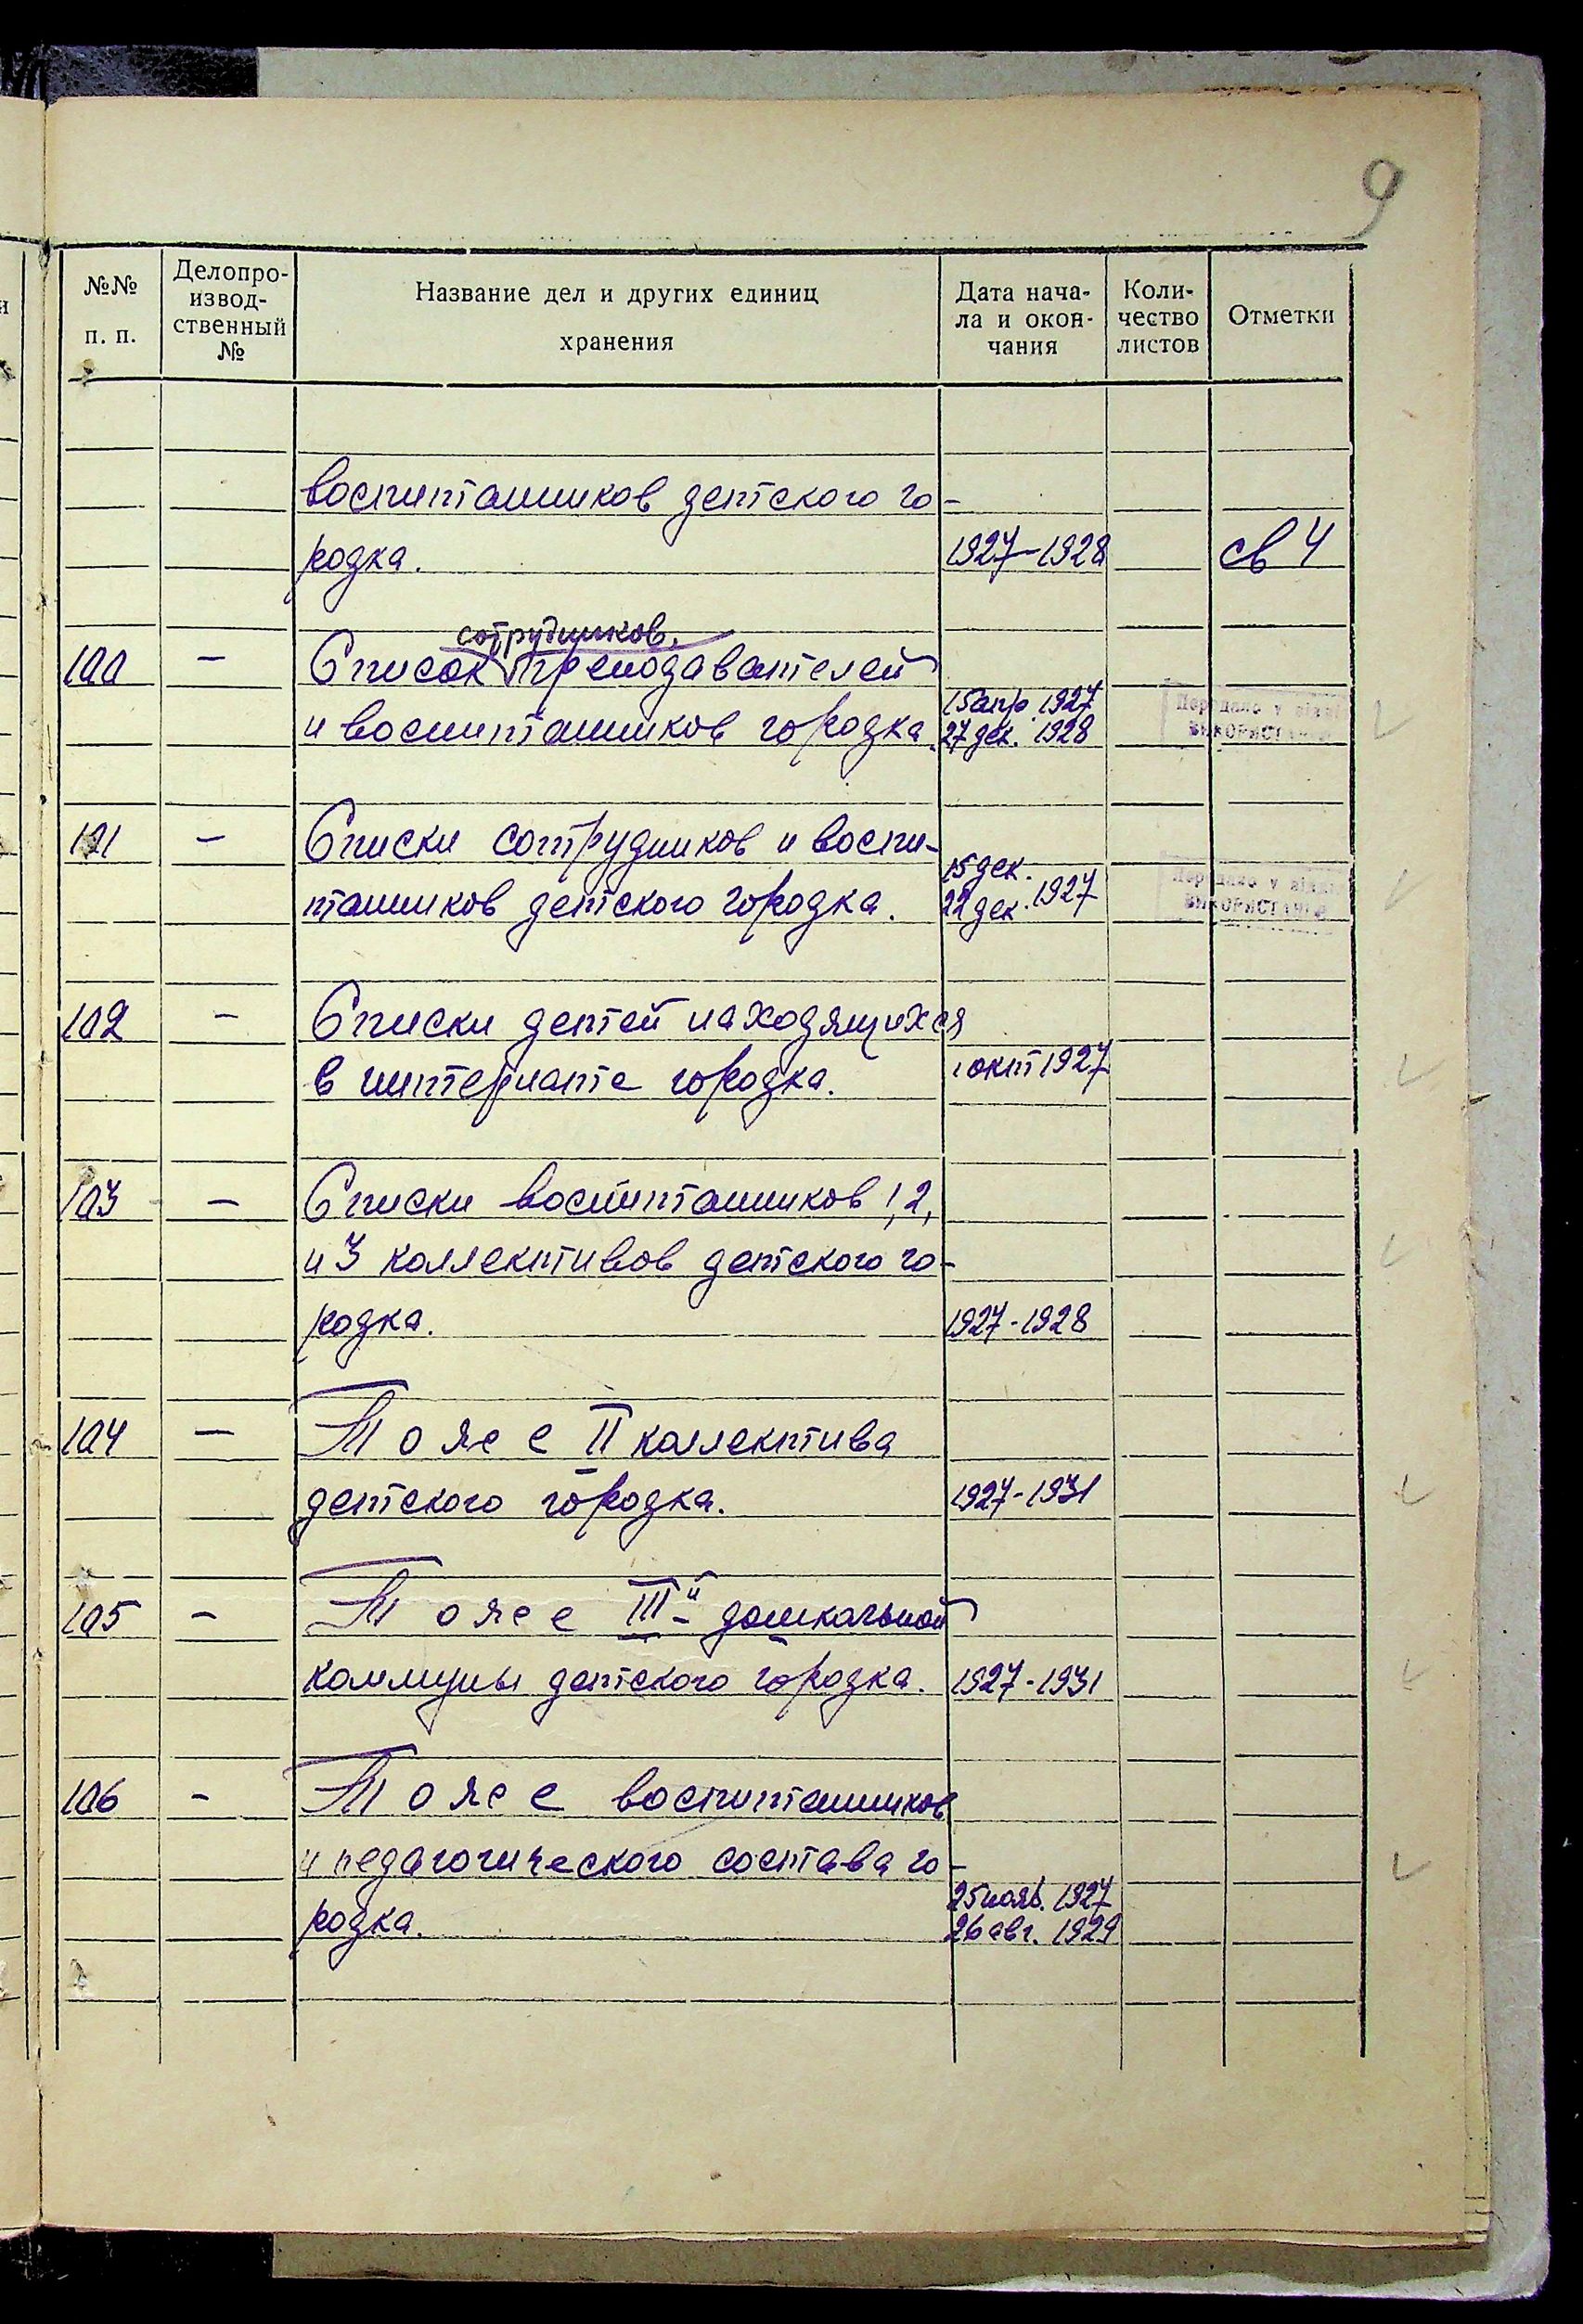 9
№№ п. п.
Делопро-
извод-
ственный
№
Название дел и других единиц
хранения
Дата нача-
ла и окон-
чания
Коли-
чество
листов
Отметки
воспитанников детского го-
родка. 1927-1928 св 4
сотрудников,
100 - Список преподавателей
15 апр. 1927
и воспитанников городка. 27 дек. 1928
Передано у
101 - Списки сотрудников и воспи-
15 дек.
танников детского городка. 22 дек. 1927
Передано у
102 - Списки детей находящихся
в интернате городка. 1 окт 1927
103 - Списки воспитанников 1, 2,
и 3 коллективов детского го-
родка. 1927-1928
104 - То же II коллектива
детского городка. 1927-1931
105 - То же III-й дошкольной
коммуны детского городка. 1927-1931
106 - То же воспитанников
и педагогического состава го-
25 нояб. 1927
родка. 26 авг. 1929